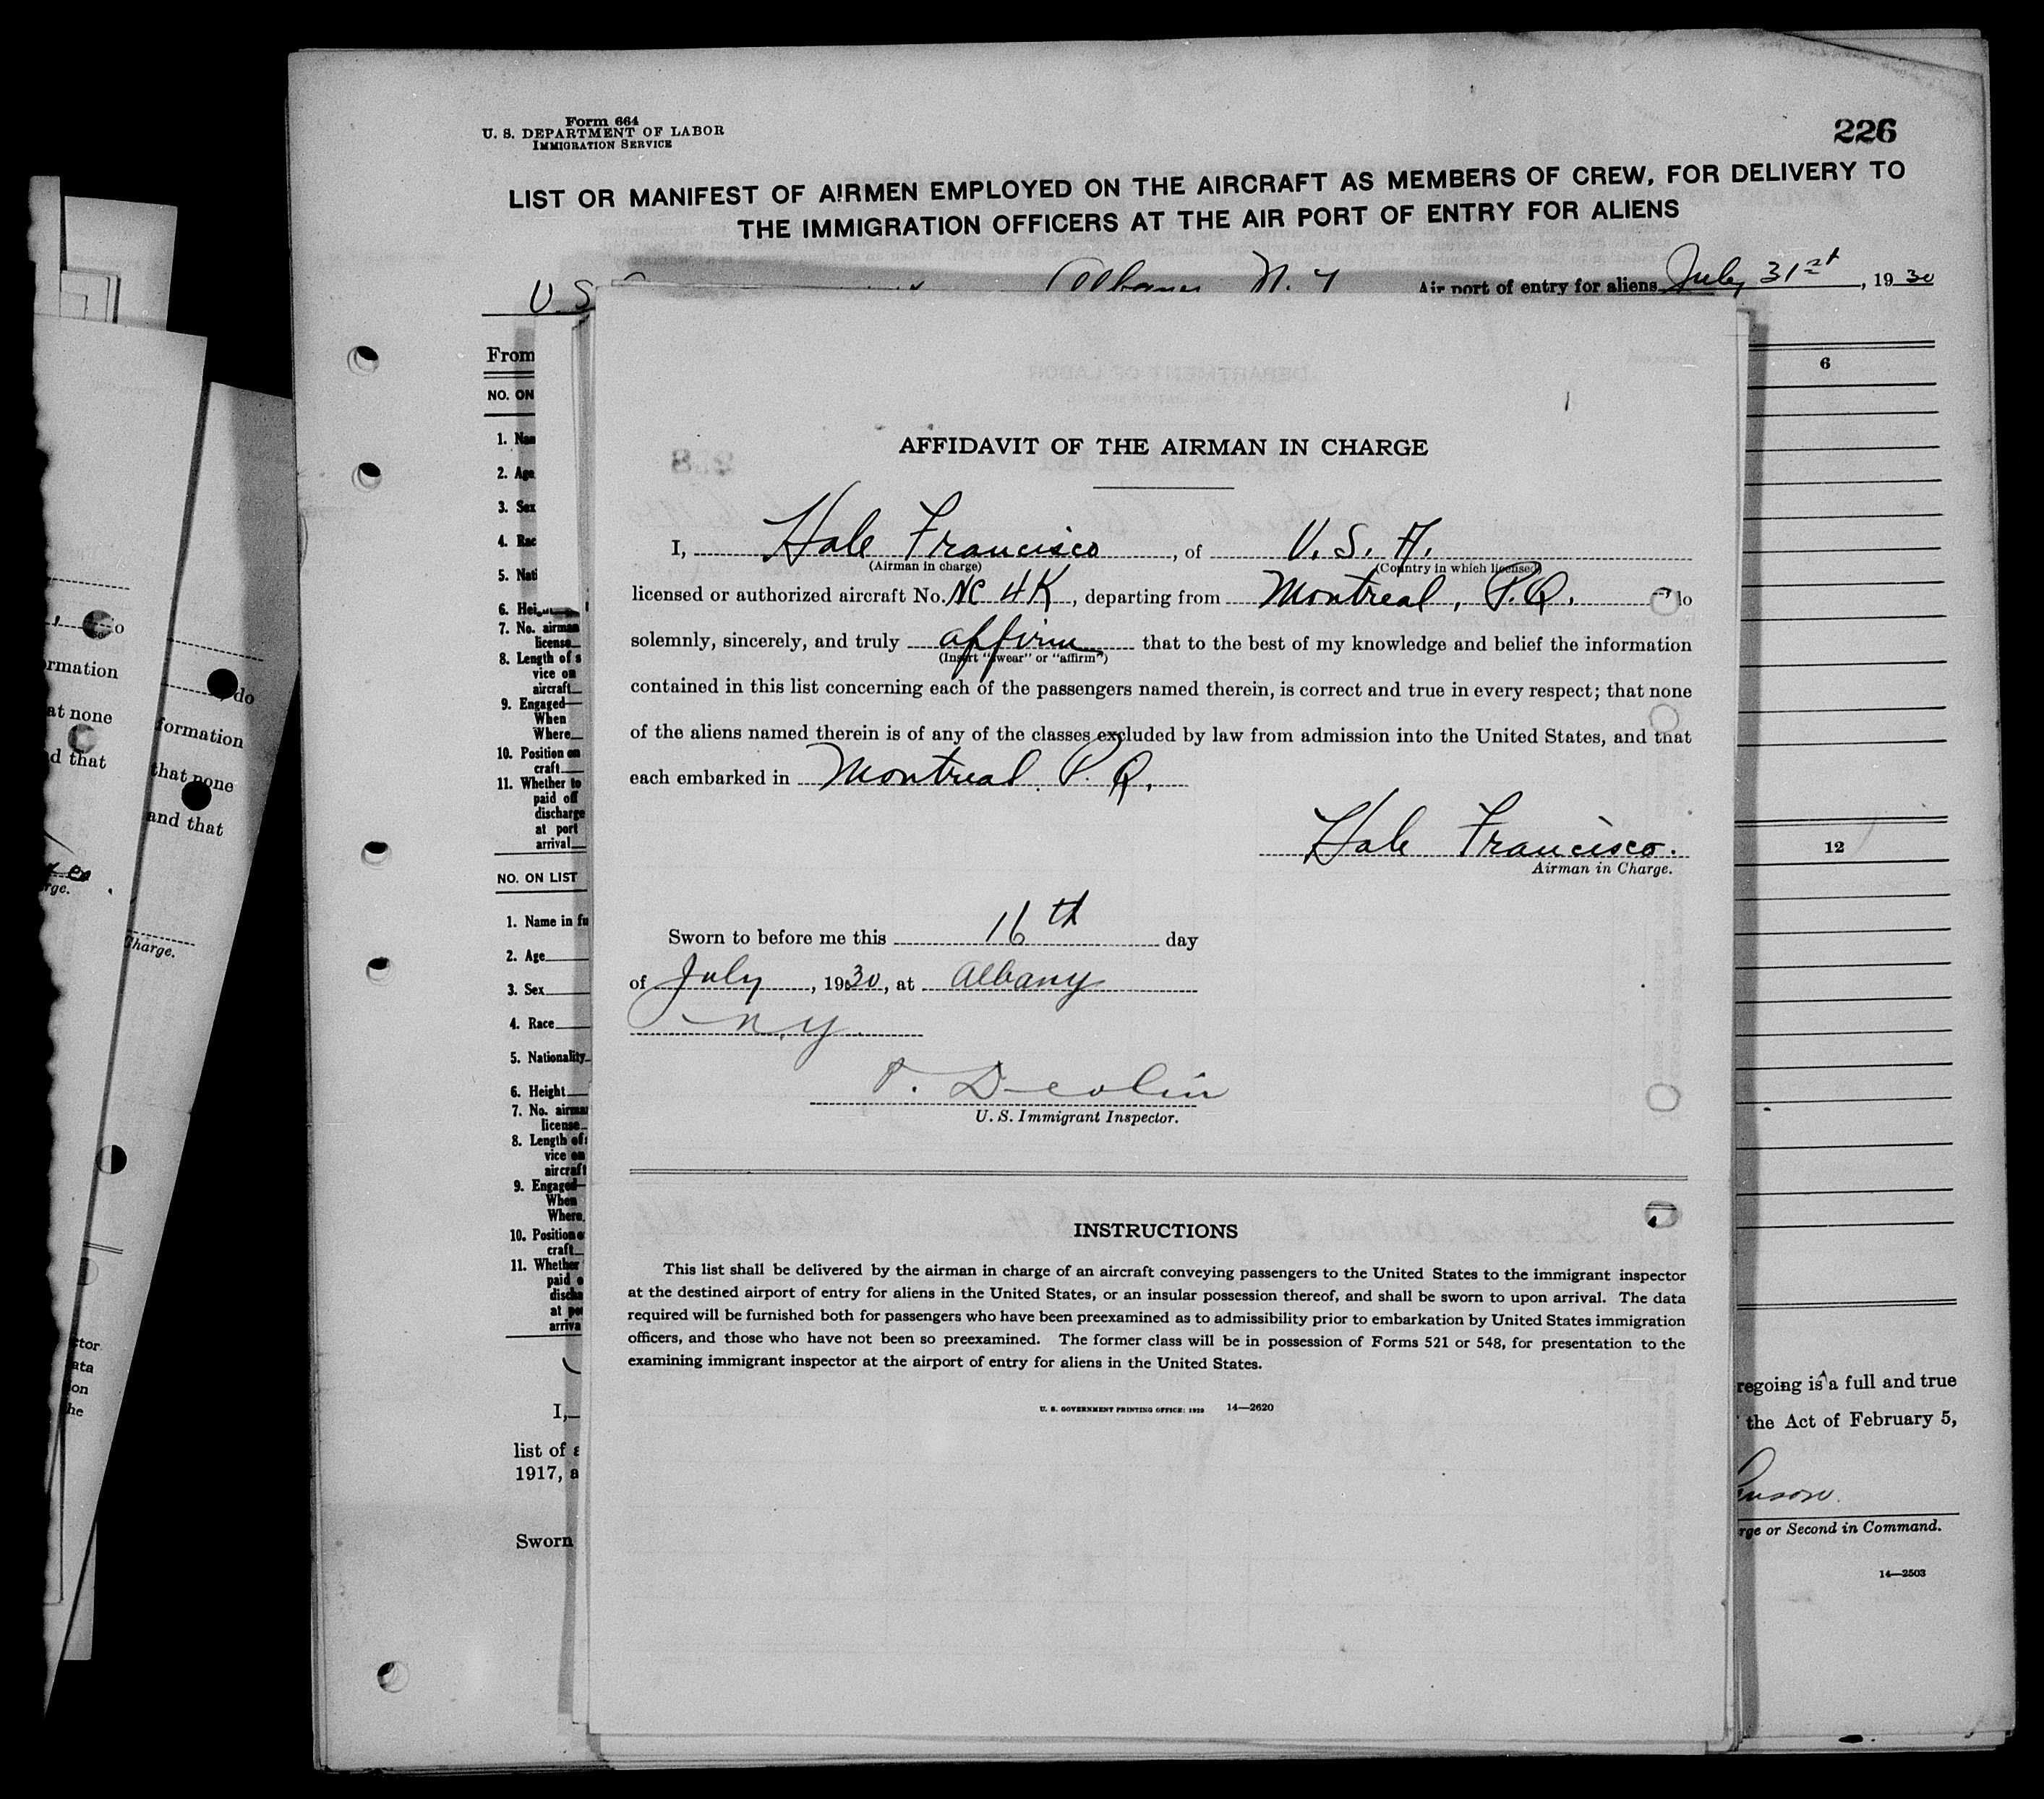 Form 664
U. S. DEPARTMENT OF LABOR
IMMIGRATION SERVICE
226
LIST OR MANIFEST OF AIRMEN EMPLOYED ON THE AIRCRAFT AS MEMBERS OF CREW, FOR DELIVERY TO
THE IMMIGRATION OFFICERS AT THE AIR PORT OF ENTRY FOR ALIENS
U S Albany N. Y Air port of entry for aliens July 31st, 1930
From
6
NO. ON
1. Nam
2. Age
3. Sex
4. Rac
5. Nati
6. Hei
7. No. airman
license
8. Length of s
vice on
aircraft
9. Engaged
When
Where
10. Position on
craft
11. Whether to
paid off
discharge
at port
arrival
12
NO. ON LIST
1. Name in fu
2. Age
3. Sex
4. Race
5. Nationality
6. Height
7. No. airman
license
8. Length of
vice on
aircraft
9. Engaged
When
Where
10. Position o
craft
11. Whether
paid o
discha
at por
arriva
I,
list of a
1917, a
Sworn
AFFIDAVIT OF THE AIRMAN IN CHARGE
I, Hale Francisco, of U. S. A.
(Airman in charge) (Country in which licensed)
licensed or authorized aircraft No. NC 4K, departing from Montreal, P.Q., do
solemnly, sincerely, and truly affirm that to the best of my knowledge and belief the information
(Insert "swear" or "affirm")
contained in this list concerning each of the passengers named therein, is correct and true in every respect; that none
of the aliens named therein is of any of the classes excluded by law from admission into the United States, and that
each embarked in Montreal. P. Q.
Hale Francisco.
Airman in Charge.
Sworn to before me this 16th day
of July, 1930, at Albany
N.Y.
P. Devlin
U. S. Immigrant Inspector.
INSTRUCTIONS
This list shall be delivered by the airman in charge of an aircraft conveying passengers to the United States to the immigrant inspector
at the destined airport of entry for aliens in the United States, or an insular possession thereof, and shall be sworn to upon arrival. The data
required will be furnished both for passengers who have been preexamined as to admissibility prior to embarkation by United States immigration
officers, and those who have not been so preexamined. The former class will be in possession of Forms 521 or 548, for presentation to the
examining immigrant inspector at the airport of entry for aliens in the United States.
U. S. GOVERNMENT PRINTING OFFICE: 1929 14—2620
regoing is a full and true
the Act of February 5,
rge or Second in Command.
14—2503
o
rmation
at none
d that
rge.
do
formation
that none
and that
Charge.
ctor
ata
on
he